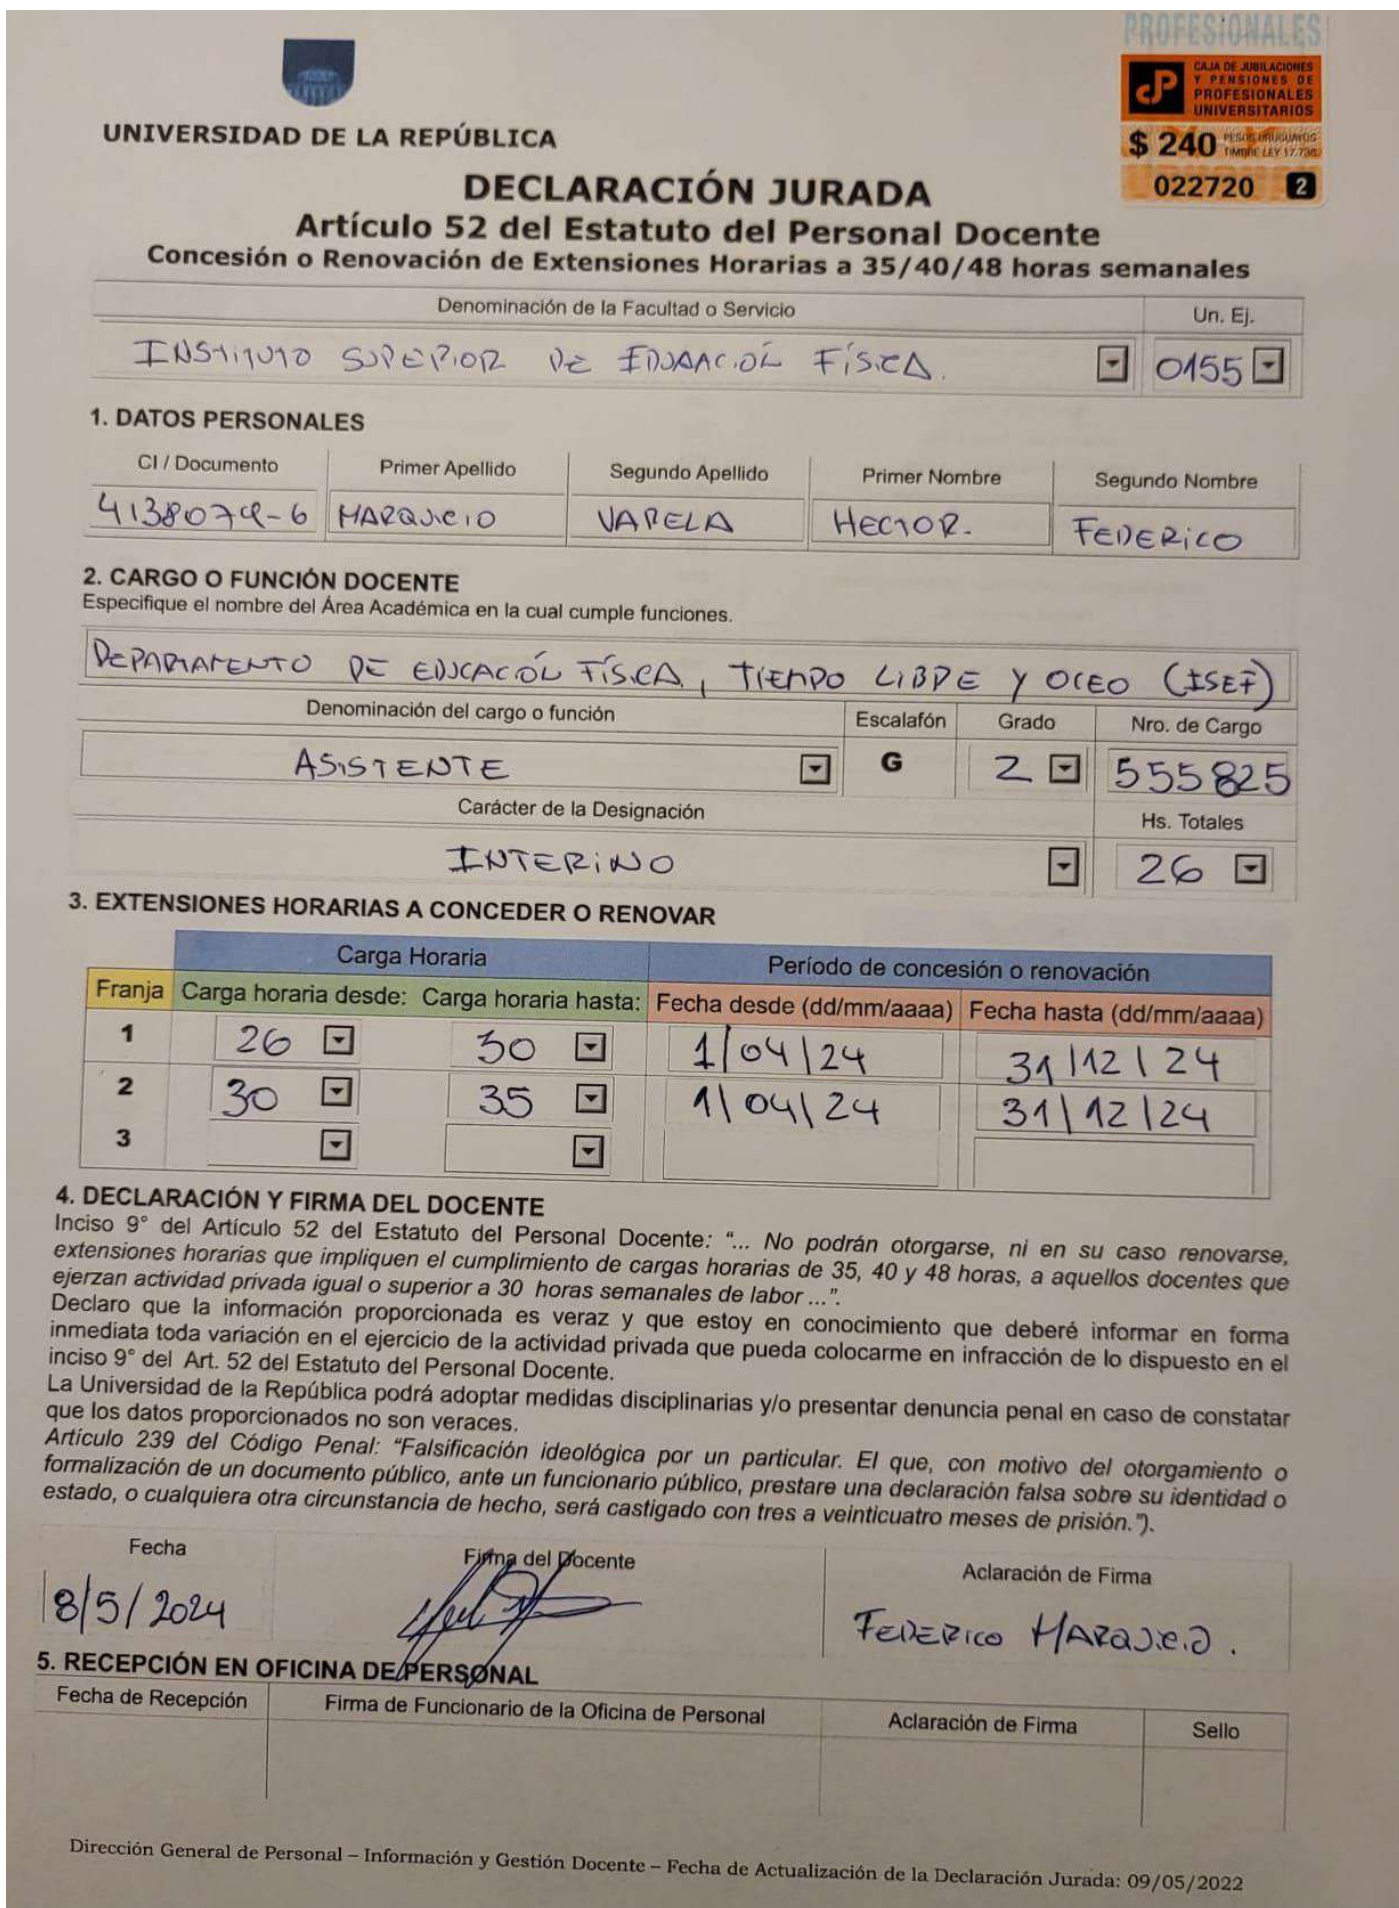 PROFESIONALES
CAJA DE JUBILACIONES
Y PENSIONES DE
PROFESIONALES
UNIVERSITARIOS
$ 240 PESOS URUGUAYOS
TIMBRE LEY 17.738
022720 2
UNIVERSIDAD DE LA REPÚBLICA
DECLARACIÓN JURADA
Artículo 52 del Estatuto del Personal Docente
Concesión o Renovación de Extensiones Horarias a 35/40/48 horas semanales
Denominación de la Facultad o Servicio Un. Ej.
INSTITUTO SUPERIOR DE EDUCACIÓN FÍSICA. 0155
1. DATOS PERSONALES
CI / Documento Primer Apellido Segundo Apellido Primer Nombre Segundo Nombre
MARQUICIO VARELA HECTOR. FEDERICO
2. CARGO O FUNCIÓN DOCENTE
Especifique el nombre del Área Académica en la cual cumple funciones.
DEPARTAMENTO DE EDUCACIÓN FÍSICA, TIEMPO LIBRE Y OCEO (ISEF)
Denominación del cargo o función Escalafón Grado Nro. de Cargo
ASISTENTE G 2 555825
Carácter de la Designación Hs. Totales
INTERINO 26
3. EXTENSIONES HORARIAS A CONCEDER O RENOVAR
Carga Horaria Período de concesión o renovación
Franja Carga horaria desde: Carga horaria hasta: Fecha desde (dd/mm/aaaa) Fecha hasta (dd/mm/aaaa)
1 26 30 1/04/24 31/12/24
2 30 35 1/04/24 31/12/24
3
4. DECLARACIÓN Y FIRMA DEL DOCENTE
Inciso 9° del Artículo 52 del Estatuto del Personal Docente: “... No podrán otorgarse, ni en su caso renovarse,
extensiones horarias que impliquen el cumplimiento de cargas horarias de 35, 40 y 48 horas, a aquellos docentes que
ejerzan actividad privada igual o superior a 30 horas semanales de labor ...”.
Declaro que la información proporcionada es veraz y que estoy en conocimiento que deberé informar en forma
inmediata toda variación en el ejercicio de la actividad privada que pueda colocarme en infracción de lo dispuesto en el
inciso 9° del Art. 52 del Estatuto del Personal Docente.
La Universidad de la República podrá adoptar medidas disciplinarias y/o presentar denuncia penal en caso de constatar
que los datos proporcionados no son veraces.
Artículo 239 del Código Penal: “Falsificación ideológica por un particular. El que, con motivo del otorgamiento o
formalización de un documento público, ante un funcionario público, prestare una declaración falsa sobre su identidad o
estado, o cualquiera otra circunstancia de hecho, será castigado con tres a veinticuatro meses de prisión.”).
Fecha Firma del Docente Aclaración de Firma
8/5/2024 FEDERICO MARQUICIO.
5. RECEPCIÓN EN OFICINA DE PERSONAL
Fecha de Recepción Firma de Funcionario de la Oficina de Personal Aclaración de Firma Sello
Dirección General de Personal – Información y Gestión Docente – Fecha de Actualización de la Declaración Jurada: 09/05/2022